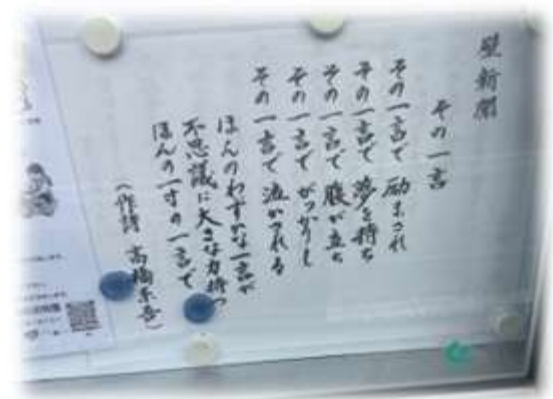 壁新聞
その一言
その一言で 励まされ
その一言で 夢を持ち
その一言で 腹が立ち
その一言で がっかりし
その一言で 泣かされる
ほんのわずかな一言が
不思議に大きな力持つ
ほんの一寸の一言で
(作詩 高橋系吾)